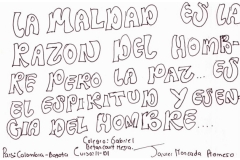 LA MALDAD ES LA
RAZON DEL HOMB-
RE PERO LA PAZ... ES
EL ESPIRITUD Y ESEN-
CIA DEL HOMBRE...
Colegio: Gabriel
Betancourt Mejia.
Pais: Colombia - Bogota Curso: 11-01 Javier Moncada